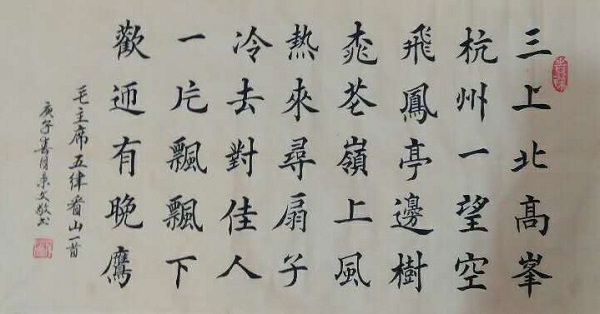 三上北高峯
杭州一望空
飛鳳亭邊樹
桃花嶺上風
熱來尋扇子
冷去對佳人
一片飄飄下
歡迎有晚鷹
毛主席五律看山一首
庚子春月文敬书